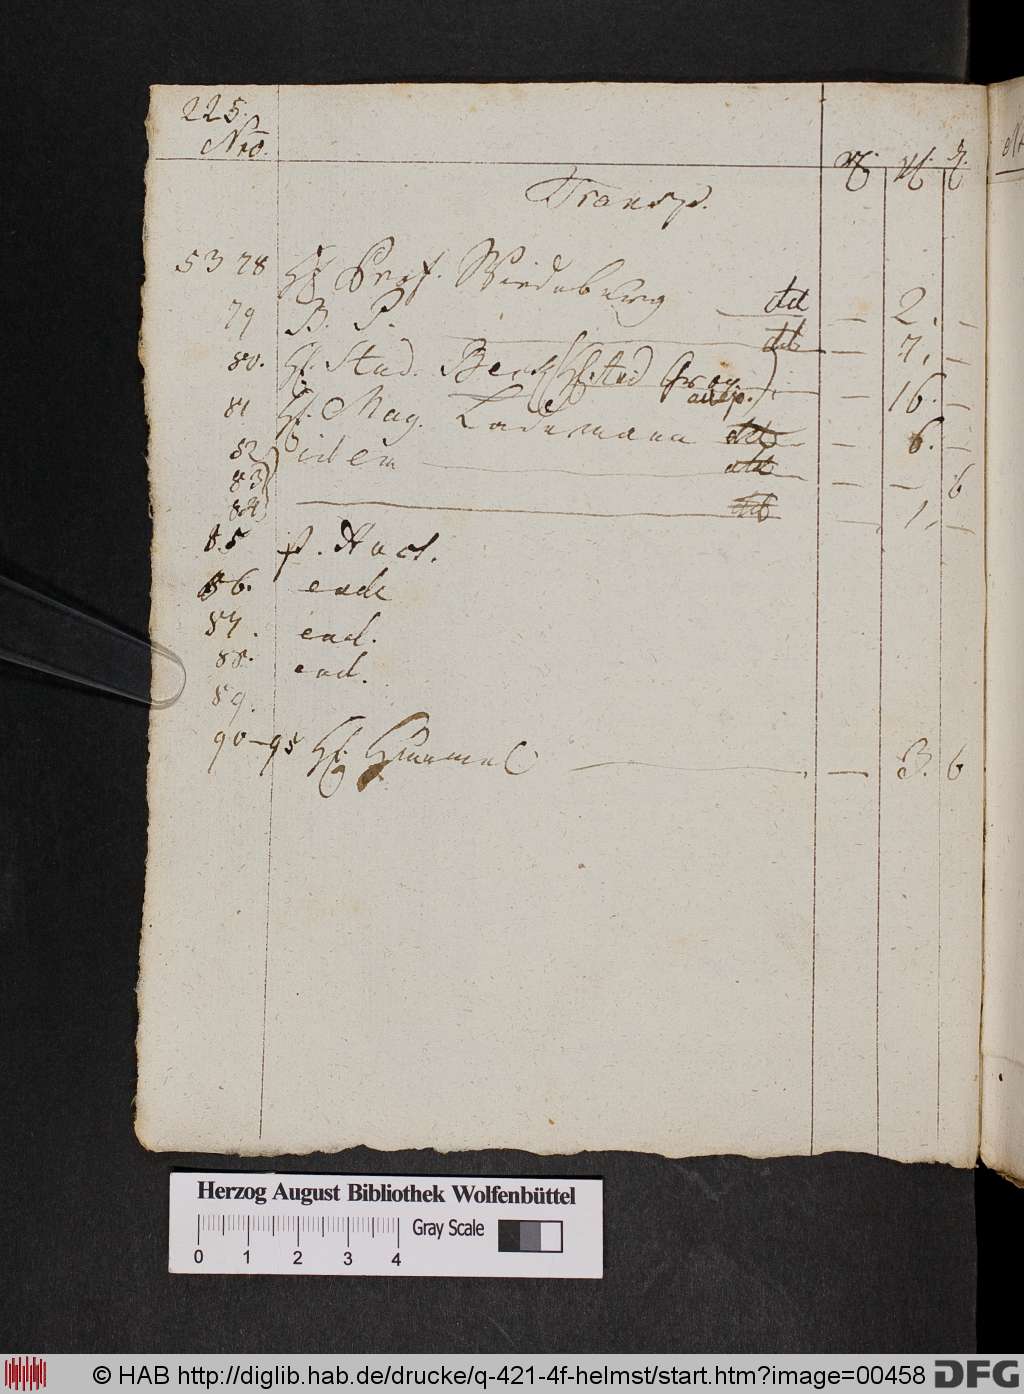 225.
Nro.
Transp.
5378 H. Prof. Wiedeburg dd — 2. —
79 B. P. dd — 7. —
80. H. Stud. Beck (H. Stud ausp.) — 16. —
81 H. Mag. Lademann dd — 6. —
82 idem dd — — 6
83
84 dd — 1. —
85 p. Auct.
86. ead
87. ead.
88. ead.
89.
90–95 H. Himmel — 3. 6
Herzog August Bibliothek Wolfenbüttel
0 1 2 3 4 Gray Scale
© HAB http://diglib.hab.de/drucke/q-421-4f-helmst/start.htm?image=00458 DFG